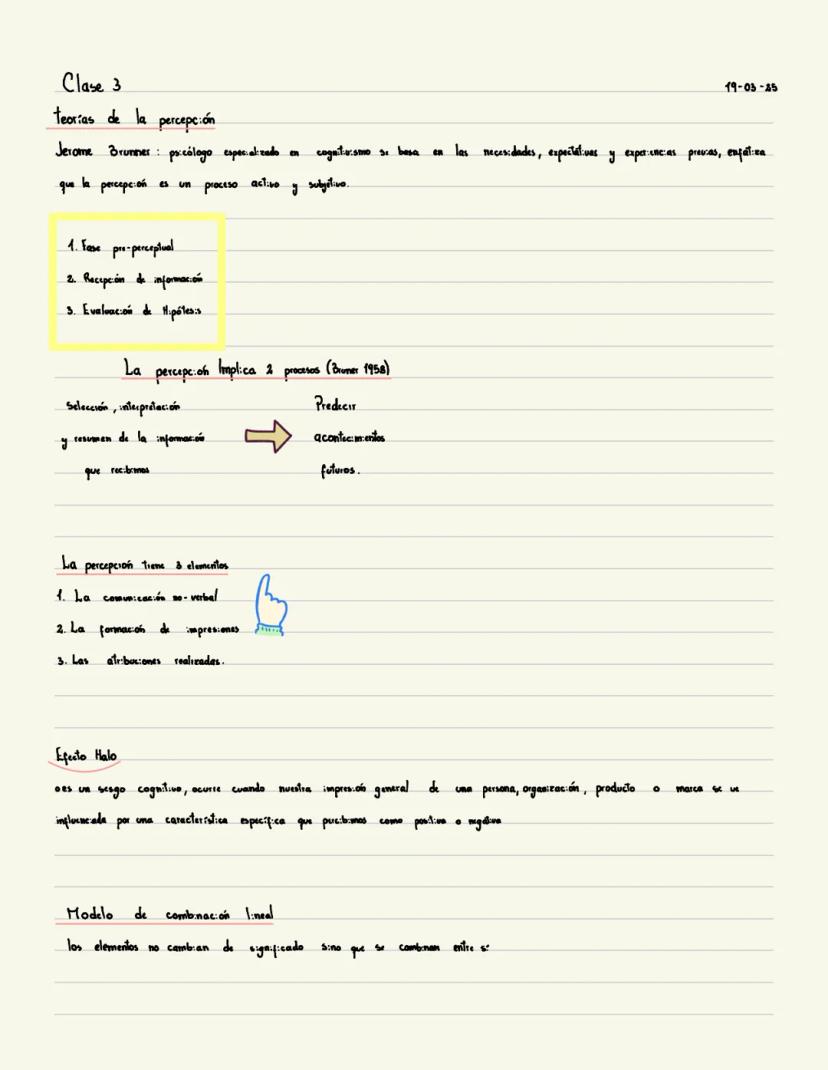 Clase 3
19-03-25
teorías de la percepción
Jerome Brunner : psicólogo especializado en cognitivismo se basa en las necesidades, expectativas y experiencias previas, enfatiza
que la percepción es un proceso activo y subjetivo.
1. Fase pre-perceptual
2. Recepción de información
3. Evaluación de Hipótesis
La percepción Implica 2 procesos (Bruner 1958)
Selección, interpretación
y resumen de la información
que recibimos
Predecir
acontecimientos
futuros.
La percepción tiene 3 elementos
1. La comunicación no-verbal
2. La formación de impresiones
3. Las atribuciones realizadas.
Efecto Halo
es un sesgo cognitivo, ocurre cuando nuestra impresión general de una persona, organización, producto o marca se ve
influenciada por una característica específica que percibimos como positiva o negativa
Modelo de combinación lineal
los elementos no cambian de significado sino que se combinan entre si